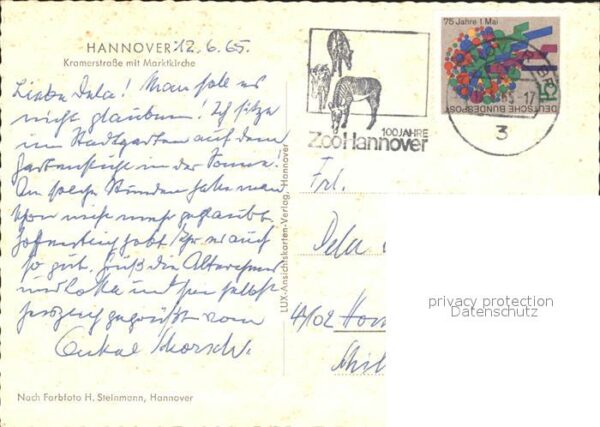 HANNOVER 12.6.65.
Kramerstraße mit Marktkirche
Liebe Dela! Man soll es
nicht glauben! Ich sitze
im Stadtgarten auf dem
Gartenstuhl in der Sonne!
An solche Stunden hatte man
schon nicht mehr geglaubt.
Hoffentlich habt Ihr es auch
so gut. Grüß die
und Lotte und sei selbst
herzlich gegrüßt vom
Onkel Schorsch.
Nach Farbfoto H. Steinmann, Hannover
LUX-Ansichtskarten-Verlag, Hannover
100 JAHRE
Zoo Hannover
75 Jahre 1. Mai
DEUTSCHE BUNDESPOST
15
3
Frl.
Dela
privacy protection
Datenschutz